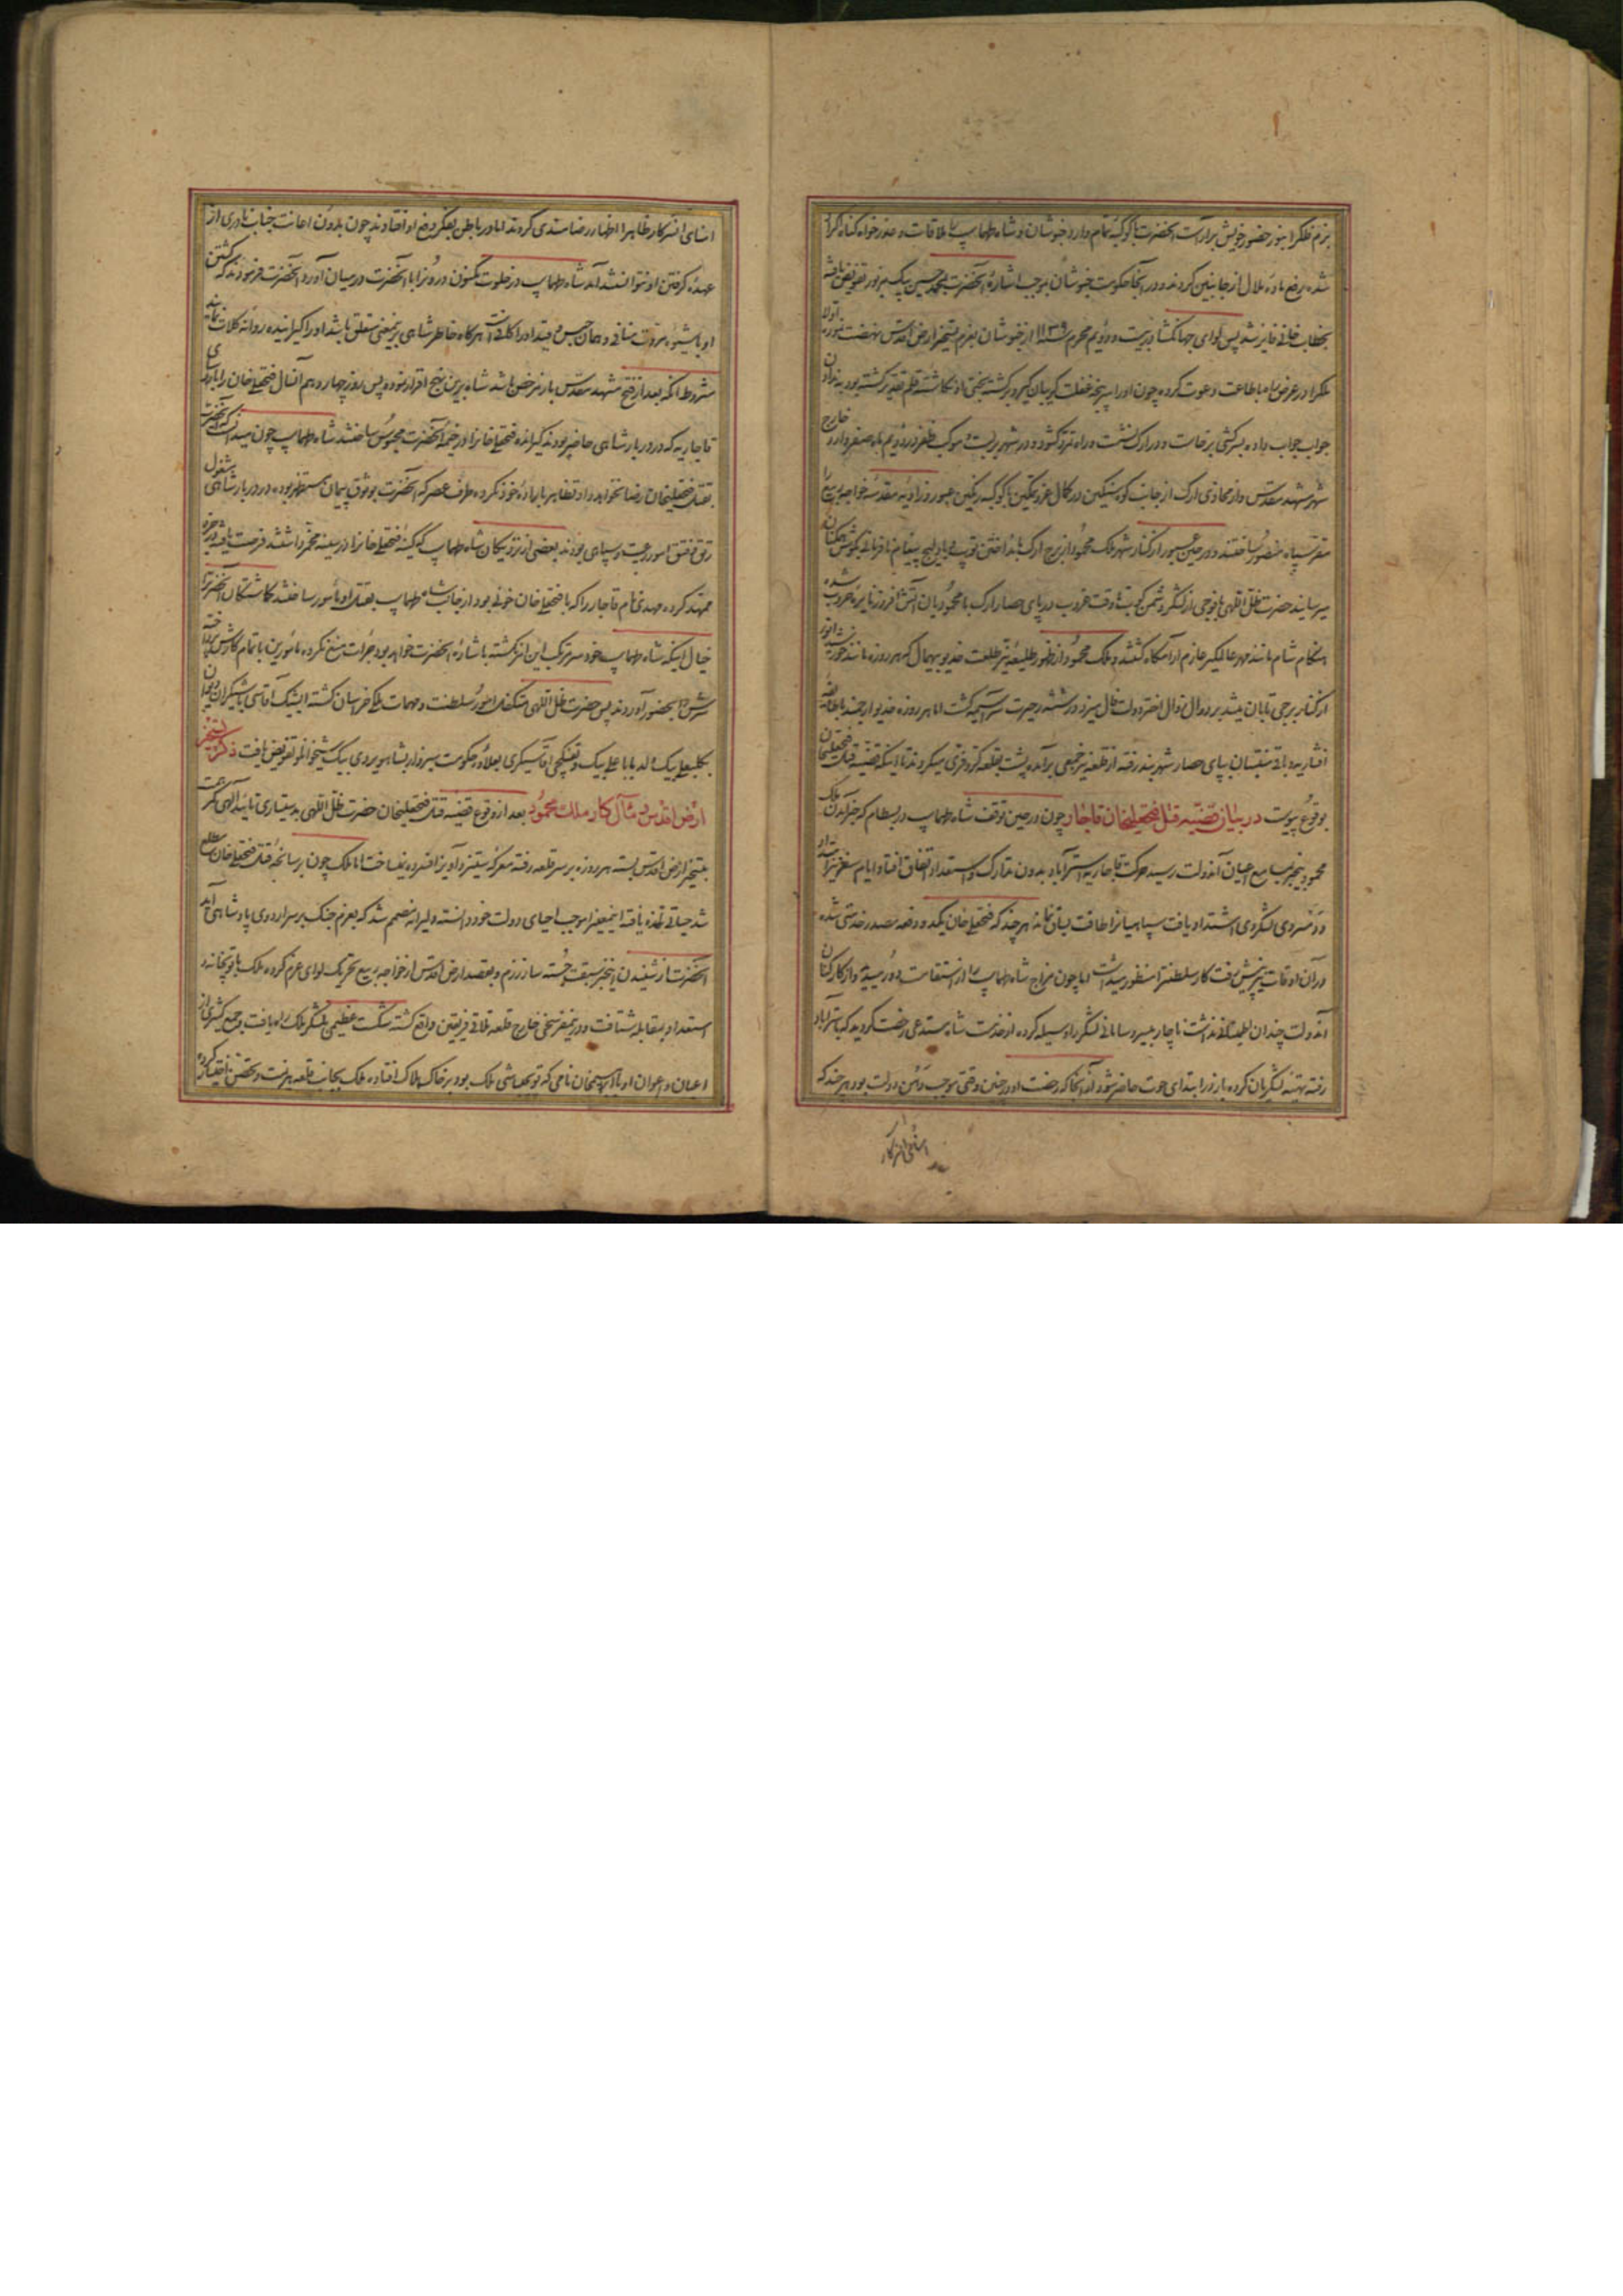 بزم ظفر را بنور حضور خویش برآراست آنحضرت با کوکبهٔ تمام وارد خبوشان و شاه طهماسب را ملاقات و عذرخواه گناه
شده رفع مادهٔ ملال از جانبین کردند و در آنجا حکومت خبوشان بموجب اشارهٔ آنحضرت بمحمدحسین بیک مزبور تفویض یافته
بخطاب خانی فایز شد پس لوای جهانگشا در بیست و دویم محرم سنه ۱۱۳۹ از خبوشان بعزم تسخیر ارض اقدس نهضت
ملک را در عرض راه باطاعت دعوت کرده چون او را سرپنجهٔ غفلت گریبان گیر و برگشته بختی قلم تقدیر گشته بود
جواب جواب داده بسرکشی برخاست و در ارک نشست و راه تمرد گشود و در شهر بربست موکب ظفر در دویم ماه صفر وارد خارج
شهر مشهد مقدس و از محاذی ارک از جانب کوه سنگین در کمال عز و تمکین با کوکب رنگین عبور و زاویهٔ مقدسهٔ خواجه ربیع را
مقر سپاه منصور ساختند و در حین عبور از کنار شهر ملک محمود از برج ارک بانداختن توپ پیغام نافرمانی بگوش همگنان
میرسانید حضرت ظل اللهی با فوجی از لشکر دشمن کوب تا وقت غروب در پای حصار ارک با محمودیان آتش افروز نایرهٔ حرب شده
هنگام شام مانند مهر عالمگیر عازم آرامگاه گشتند و ملک محمود از ظهور طلیعهٔ نیر طلعت خدیو بیهمال که هر روزه مانند خورشید انور
از کنار برجی تابان میشد بر زوال اختر دولت فال میزد و رشته حیرت سراسیمه گشت اما هر روزه خدیو ارجمند با طایفهٔ
افشاریه و باقی منتسبان بپای حصار شهربند رفته از قلعه نیز جمعی برآمده پشت بقلعه کر و فری میکردند تا اینکه قضیهٔ قتل فتحعلیخان
بوقوع پیوست در بیان قضیه قتل فتحعلیخان قاجار چون در حین توقف شاه طهماسب در بسطام که خبر آمدن ملک
محمود بخبر بمسامع اعیان آندولت رسید حرکت قاجاریه استرآباد بدون تدارک و استعداد اتفاق افتاد و ایام سفر نیز امتداد
و تنگروی لشکروی اشتداد یافت سپاهیانرا طاقت لیاق نماند هر چند که فتحعلیخان یکدو دفعه مصدر خدمتی شده
در آن اوقات نیز پیش رفت کار سلطنت را منظور میداشت اما چون مزاج شاه طهماسب را از استقامت دور میدید و از کارکنان
آندولت چندان اطمینانی نداشت ناچار بیسر و سامانی لشکر را وسیله کرده از خدمت شاه مستدعی رخصت گردید که باسترآباد
رفته تهیهٔ لشکریان کرده باز در ابتدای حوت حاضر شود از آنجا که رخصت او در چنین وقتی موجب وهن دولت بود هر چند که
امنای آنسرکار
امنای آنسرکار ظاهرا اظهار رضامندی کردند اما در باطن بفکر دفع او افتادند چون بدون اعانت جناب نادری از
عهدهٔ گرفتن او نتوانستند آمد شاه طهماسب در خلوت مکنون درونرا با آنحضرت در میان آورد آنحضرت فرمودند که کشتن
او با شیوهٔ مروت منافی و همان حبس و قید او را کافیست هرگاه خاطر شاهی بر اینمعنی متعلق باشد او را گیرانیده روانه کلات نمایند
مشروط آنکه بعد از فتح مشهد مقدس باز مرخص باشد شاه برین نهج اقرار نموده پس روز چهاردهم آنسال فتحعلیخان را با امرای
قاجاریه که در دربار شاهی حاضر بودند گیرانده فتحعلیخانرا در خیمهٔ آنحضرت محبوس ساختند شاه طهماسب چون میدانست که آنحضرت
بقتل فتحعلیخان رضا نخواهد داد تظاهر باراده خود نکرده طرف عصر که آنحضرت بوثوق پیمان مستظهر بوده در دربار شاهی مشغول
رتق و فتق امور رعیت و سپاهی بودند بعضی از نزدیکان شاه طهماسب که کینهٔ فتحعلیخانرا در سینه مخمر داشتند فرصت یافته
ممهد کرده مهدی نام قاجار را که با فتحعلیخان خونی بود از جانب شاه طهماسب بقتل او مأمور ساختند گماشتگان آنحضرت
خیال اینکه شاه طهماسب خود سر مرتکب این امر نگشته باشارهٔ آنحضرت خواهد بود جرأت منع نکرده مأمورین باتمام کارش پرداخته
سرش را بحضور آوردند پس حضرت ظل اللهی متکفل امور سلطنت و مهمات ملک خراسان گشته ایشیک آقاسی باشیگری دیوان
بکلبعلی بیک ولد باباعلی بیک و تفنگچی آقاسیگری بعلاوهٔ حکومت سبزوار بشاهویردی بیک شیخوانلو تفویض یافت ذکر تسخیر
ارض اقدس و مآل کار ملک محمود بعد از وقوع قضیه قتل فتحعلیخان حضرت ظل اللهی بدستیاری تأیید الهی کمر همت
بتسخیر ارض اقدس بسته هر روزه بر سر قلعه رفته معرکهٔ ستیز و آویز افسرده نمیساخت اما ملک چون بر سانحهٔ قتل فتحعلیخان مطلع
شد حیاتی تازه یافته اینمعنی را موجب احیای دولت خود دانسته دلیرانه مصمم شد که بعزم جنگ بر سر اردوی پادشاهی آید
آنحضرت از شنیدن اینخبر سبقت جسته ساز رزم و بقصد ارض اقدس از خواجه ربیع تحریک لوای عزم کرده ملک با توپخانه و
استعداد بمقابله شتافت و در نیمفرسخی خارج قلعه تلاقی فریقین واقع گشته شکست عظیمی بلشکر ملک راه یافت و جمع کثیری از
اعیان و اعوان او با ابراهیمخان نامی که توپچیباشی ملک بود بر خاک هلاک افتاده ملک بجانب قلعه هزیمت و تحصن اختیار کرده